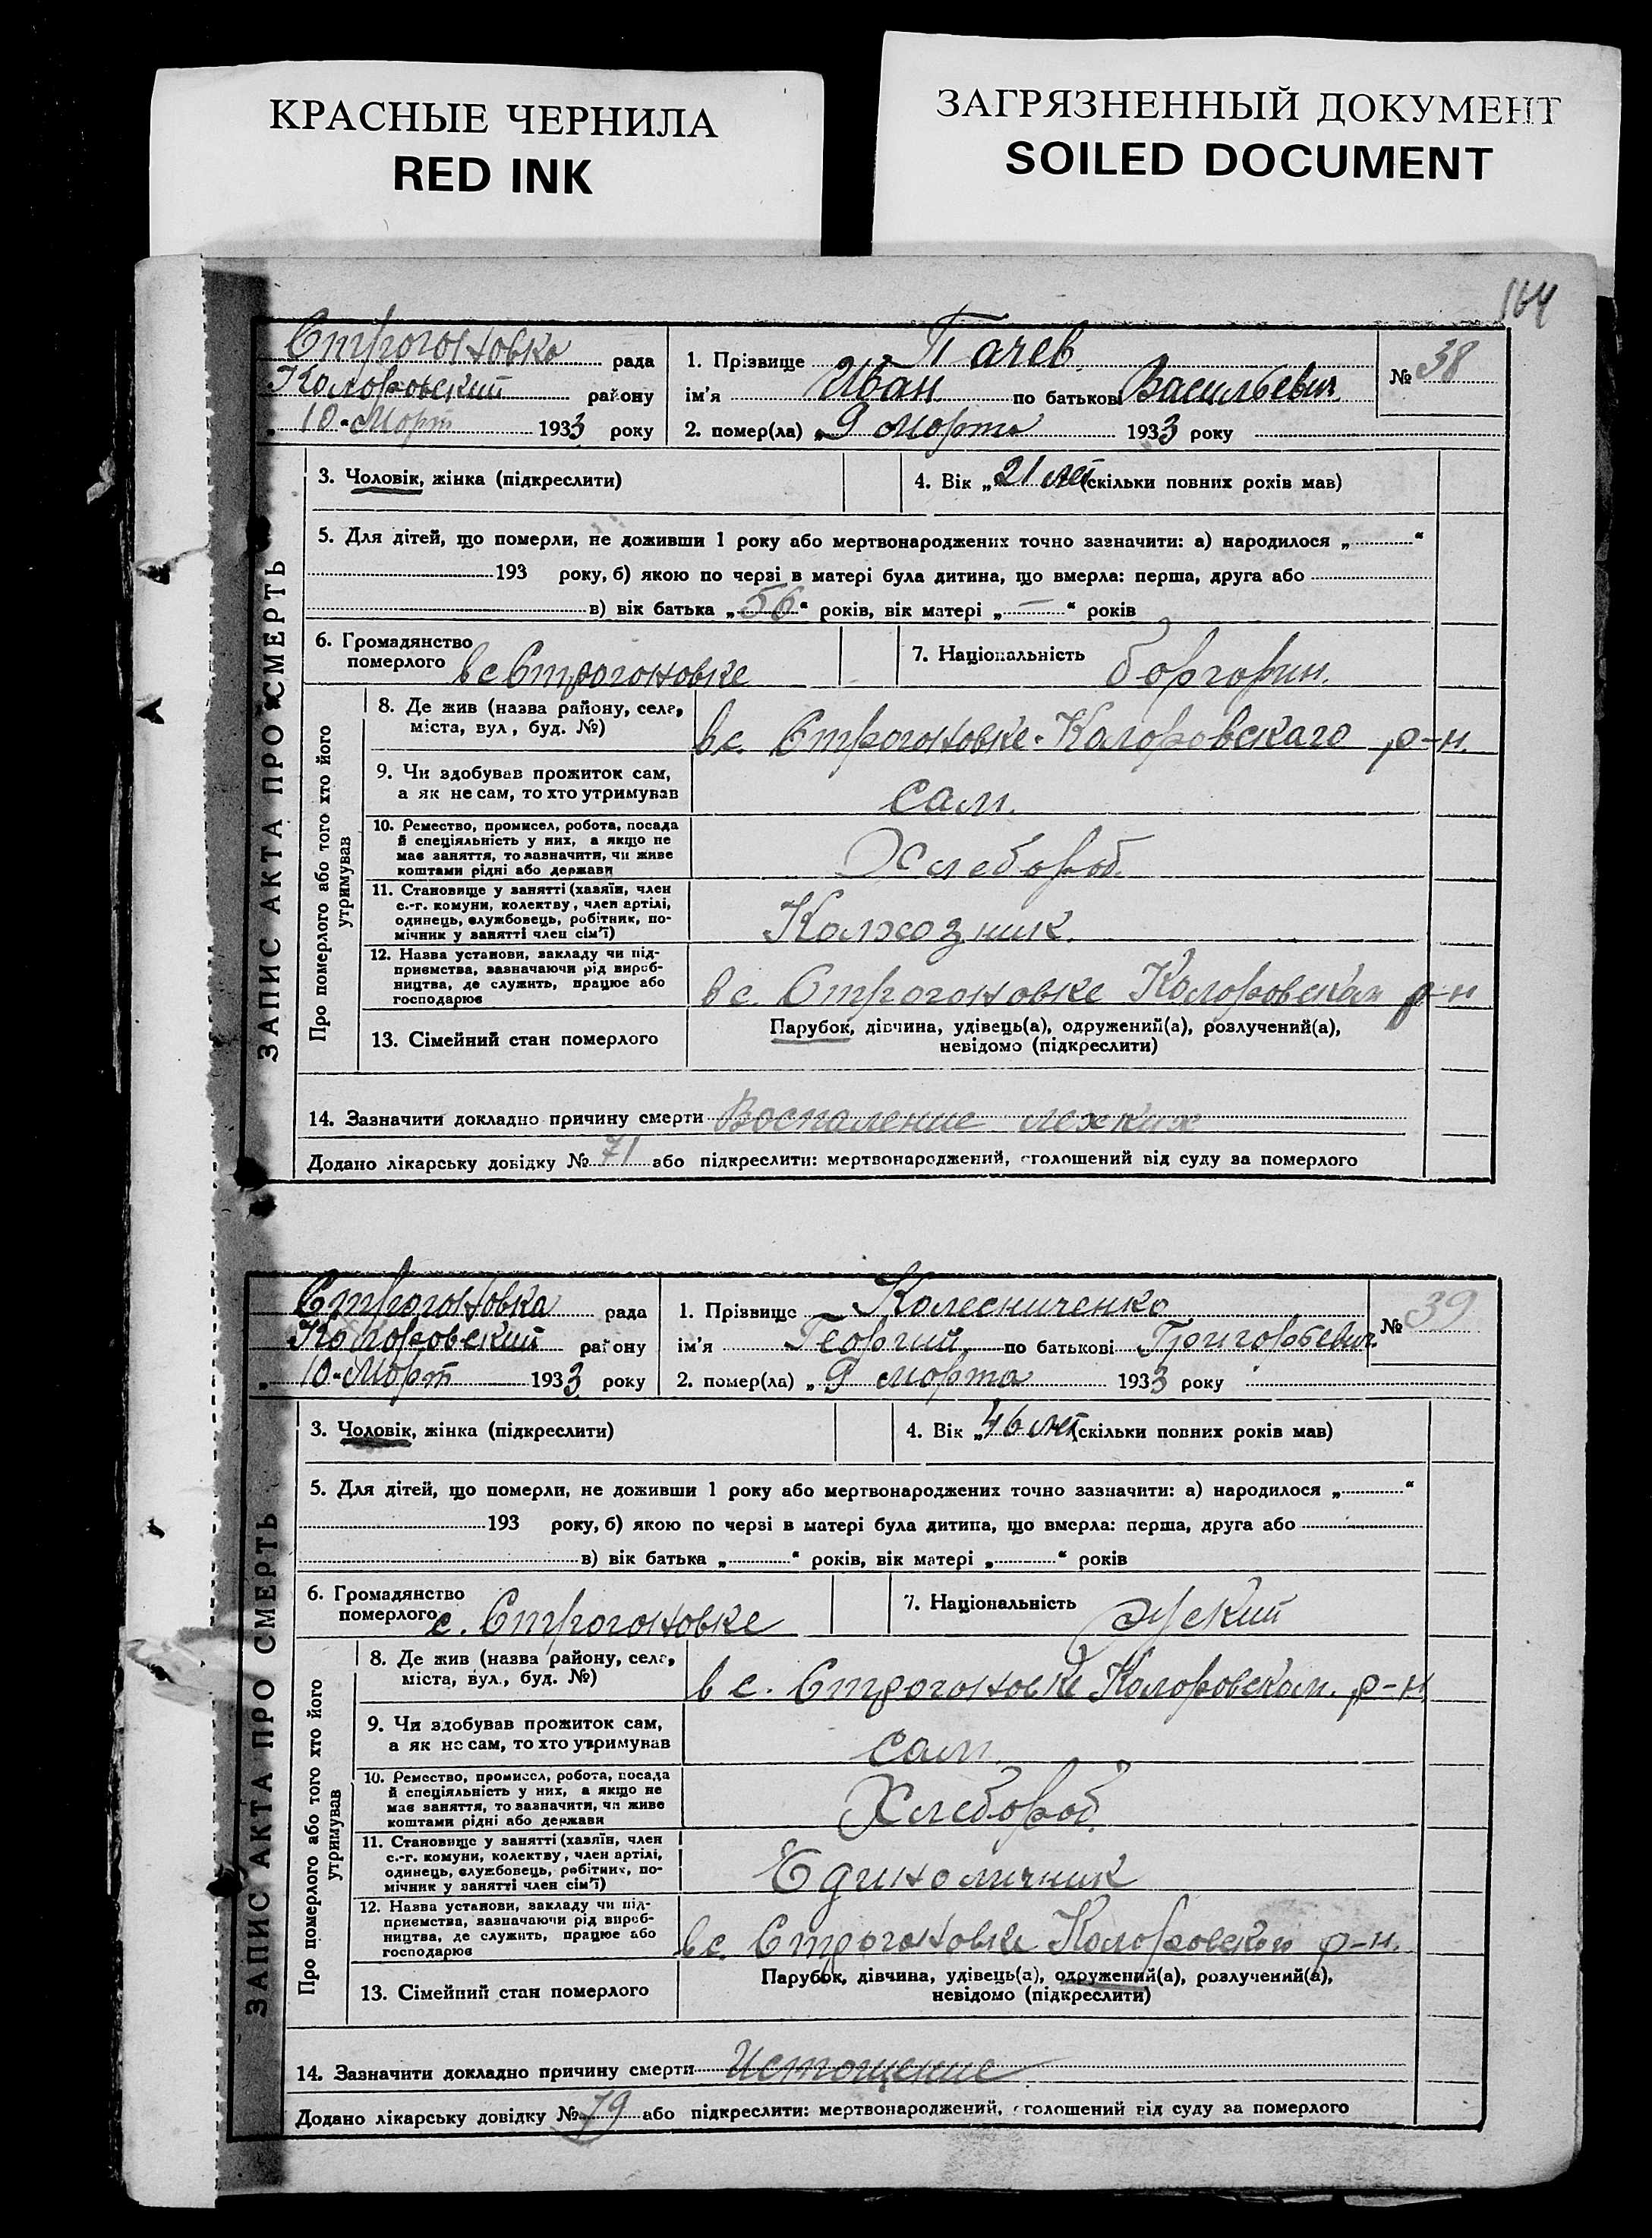 КРАСНЫЕ ЧЕРНИЛА
RED INK
ЗАГРЯЗНЕННЫЙ ДОКУМЕНТ
SOILED DOCUMENT
164
ЗАПИС АКТА ПРО СМЕРТЬ
Строгоновка рада
Коларовский району
10 Март 1933 року
1. Прізвище Тачев
ім'я Иван по батькові Васильевич
2. помер(ла) „9 марта 1933 року
№ 38
3. Чоловік, жінка (підкреслити)
4. Вік „21 лет (скільки повних років мав)
5. Для дітей, що померли, не доживши 1 року або мертвонароджених точно зазначити: а) народилося „ “
193 року, б) якою по черзі в матері була дитина, що вмерла: перша, друга або
в) вік батька „56“ років, вік матері „—“ років
6. Громадянство
померлого в с Строгоновке
7. Національність боргорин.
Про померлого або того хто його утримував
8. Де жив (назва району, села,
міста, вул, буд. №)
в с. Строгоновке. Коларовскаго р-н.
9. Чи здобував прожиток сам,
а як не сам, то хто утримував
сам.
10. Ремество, промисел, робота, посада
й спеціяльність у них, а якщо не
має заняття, то зазначити, чи живе
коштами рідні або держави
Хлебороб.
11. Становище у занятті (хазяїн, член
с.-г. комуни, колективу, член артілі,
одинець, службовець, робітник, по-
мічник у занятті член сім'ї)
Колхозник.
12. Назва установи, закладу чи під-
приємства, зазначаючи рід вироб-
ництва, де служить, працює або
господарює
в с. Строгоновке Коларовскам р-н
13. Сімейний стан померлого
Парубок, дівчина, удівець(а), одружений(а), розлучений(а),
невідомо (підкреслити)
14. Зазначити докладно причину смерти Воспаление лехких
Додано лікарську довідку № 71 або підкреслити: мертвонароджений, оголошений від суду за померлого
ЗАПИС АКТА ПРО СМЕРТЬ
Строгоновка рада
Коларовский району
10 Март 1933 року
1. Прізвище Колесниченко
ім'я Георгий по батькові Григорьевич
2. помер(ла) „9 марта 1933 року
№ 39
3. Чоловік, жінка (підкреслити)
4. Вік „46 лет (скільки повних років мав)
5. Для дітей, що померли, не доживши 1 року або мертвонароджених точно зазначити: а) народилося „ “
193 року, б) якою по черзі в матері була дитина, що вмерла: перша, друга або
в) вік батька „ “ років, вік матері „ “ років
6. Громадянство
померлого с. Строгоновке
7. Національність
Про померлого або того хто його утримував
8. Де жив (назва району, села,
міста, вул., буд. №)
в с. Строгоновке Коларовском. р-н
9. Чи здобував прожиток сам,
а як не сам, то хто утримував
сам.
10. Ремество, промисел, робота, посада
й спеціяльність у них, а якщо не
має заняття, то зазначити, чи живе
коштами рідні або держави
Хлебороб.
11. Становище у занятті (хазяїн, член
с.-г. комуни, колективу, член артілі,
одинець, службовець, робітник, по-
мічник у занятті член сім'ї)
Единоличник
12. Назва установи, закладу чи під-
приємства, зазначаючи рід вироб-
ництва, де служить, працює або
господарює
в с. Строгоновке Коларовском р-н.
13. Сімейний стан померлого
Парубок, дівчина, удівець(а), одружений(а), розлучений(а),
невідомо (підкреслити)
14. Зазначити докладно причину смерти Истощение
Додано лікарську довідку № 79 або підкреслити: мертвонароджений, оголошений від суду за померлого